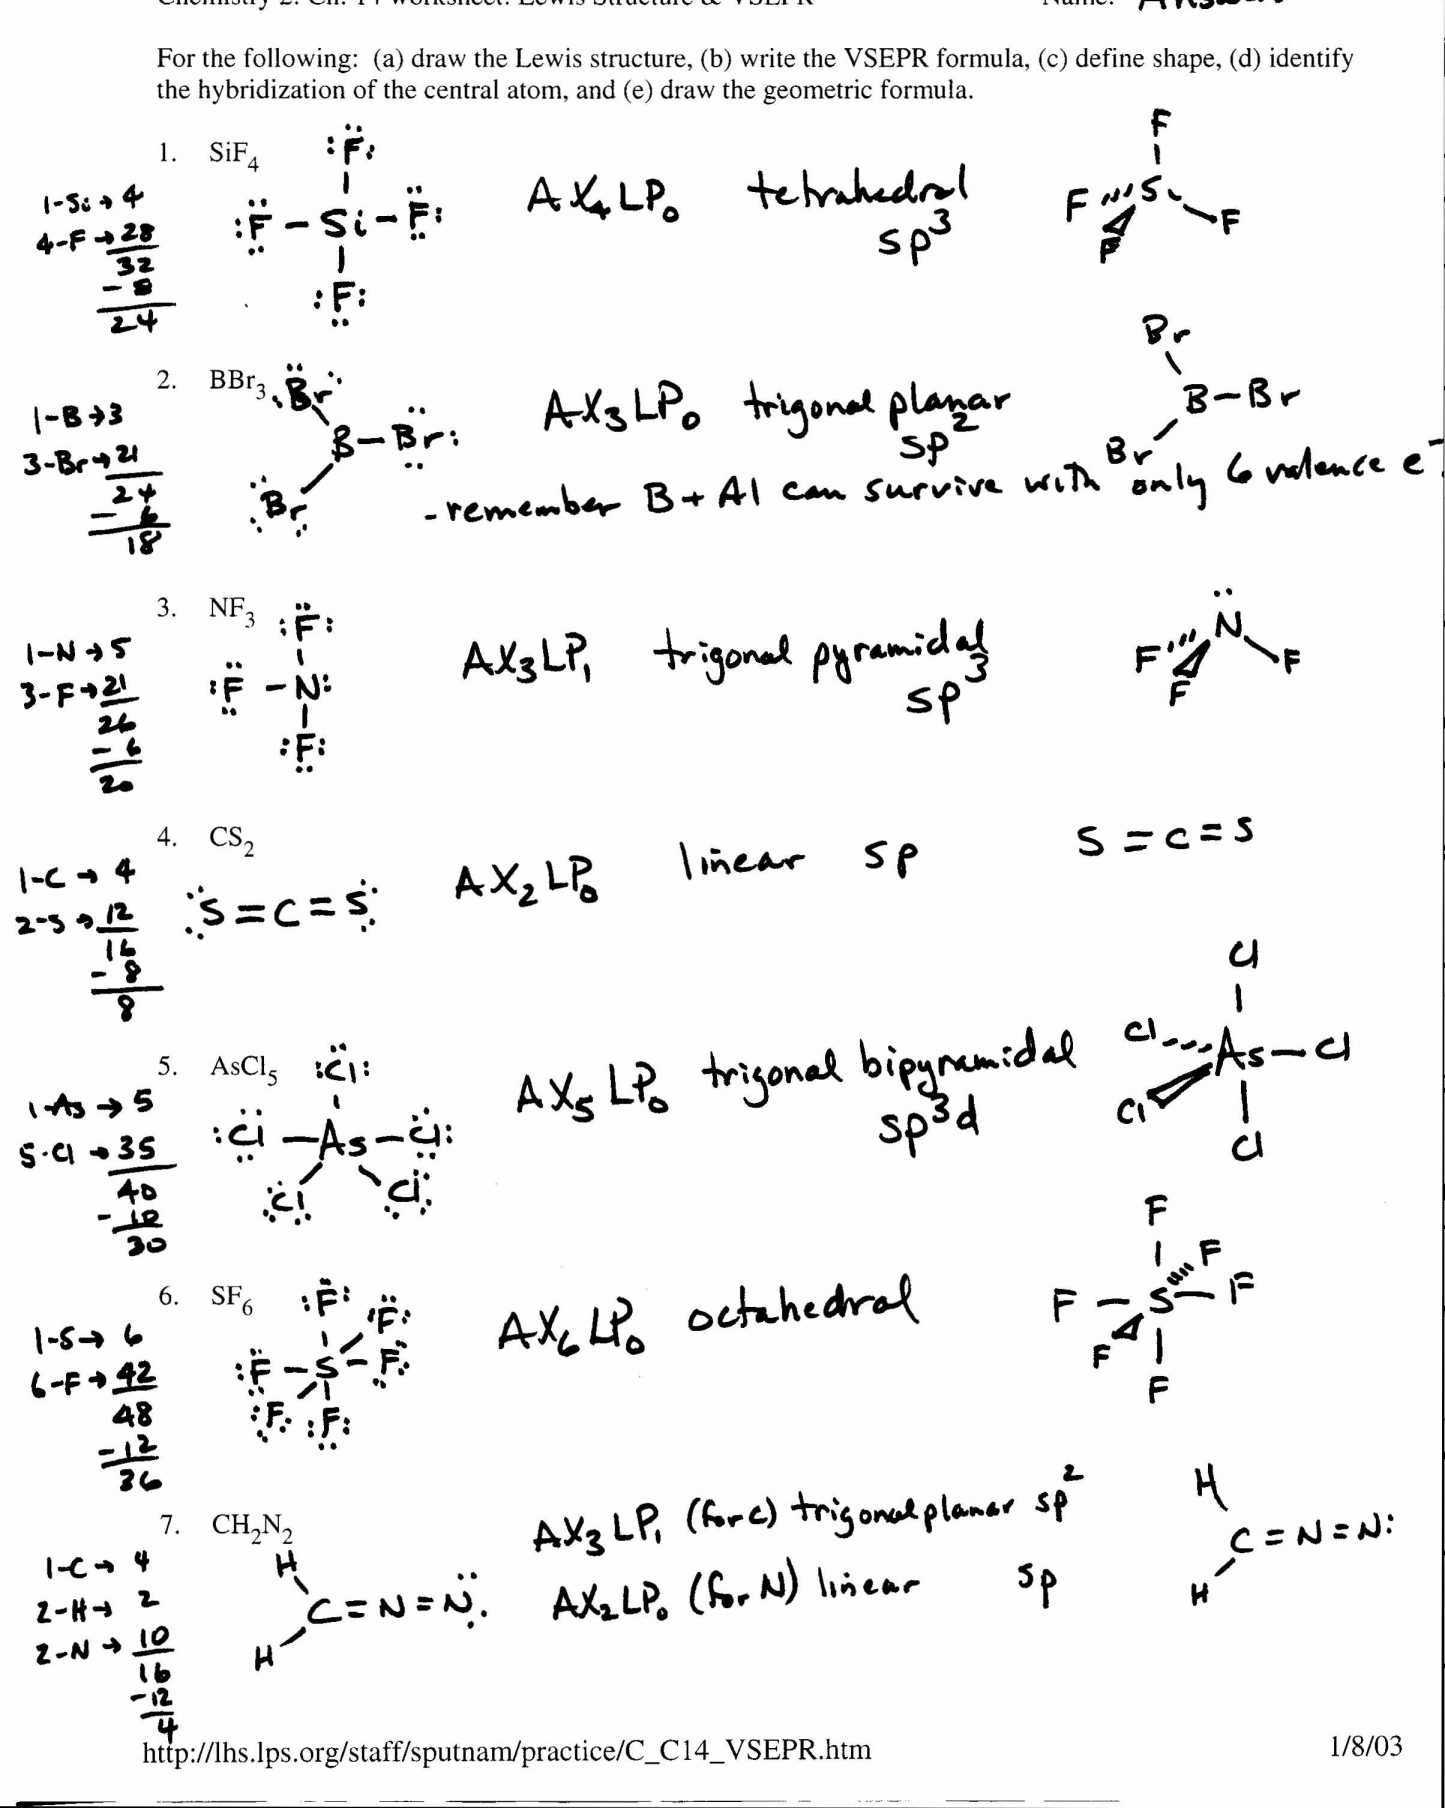 Chemistry 2: Ch. 14 worksheet: Lewis Structure & VSEPR Name: Answers
For the following: (a) draw the Lewis structure, (b) write the VSEPR formula, (c) define shape, (d) identify
the hybridization of the central atom, and (e) draw the geometric formula.
1. SiF4
1-Si → 4
4-F → 28
32
- 8
24
:F:
:F - Si - F:
:F:
AX4LP0 tetrahedral
sp3
F
F S F
F
2. BBr3
1-B → 3
3-Br → 21
24
- 6
18
Br
B - Br:
Br
AX3LP0 trigonal planar
sp2
Br
B - Br
Br
- remember B + Al can survive with only 6 valence e-
3. NF3
1-N → 5
3-F → 21
26
- 6
20
:F:
:F - N:
:F:
AX3LP1 trigonal pyramidal
sp3
N
F F
F
4. CS2
1-C → 4
2-S → 12
16
- 8
8
S = C = S
AX2LP0 linear sp
S = C = S
5. AsCl5
1-As → 5
5-Cl → 35
40
- 10
30
:Cl:
:Cl - As - Cl:
Cl Cl
AX5LP0 trigonal bipyramidal
sp3d
Cl
Cl As - Cl
Cl
Cl
6. SF6
1-S → 6
6-F → 42
48
- 12
36
:F: F:
:F - S - F:
:F: :F:
AX6LP0 octahedral
F
F
F - S - F
F
F
7. CH2N2
1-C → 4
2-H → 2
2-N → 10
16
- 12
4
H
C = N = N
H
AX3LP1 (for C) trigonal planar sp2
AX2LP0 (for N) linear sp
H
C = N = N:
H
http://lhs.lps.org/staff/sputnam/practice/C_C14_VSEPR.htm 1/8/03